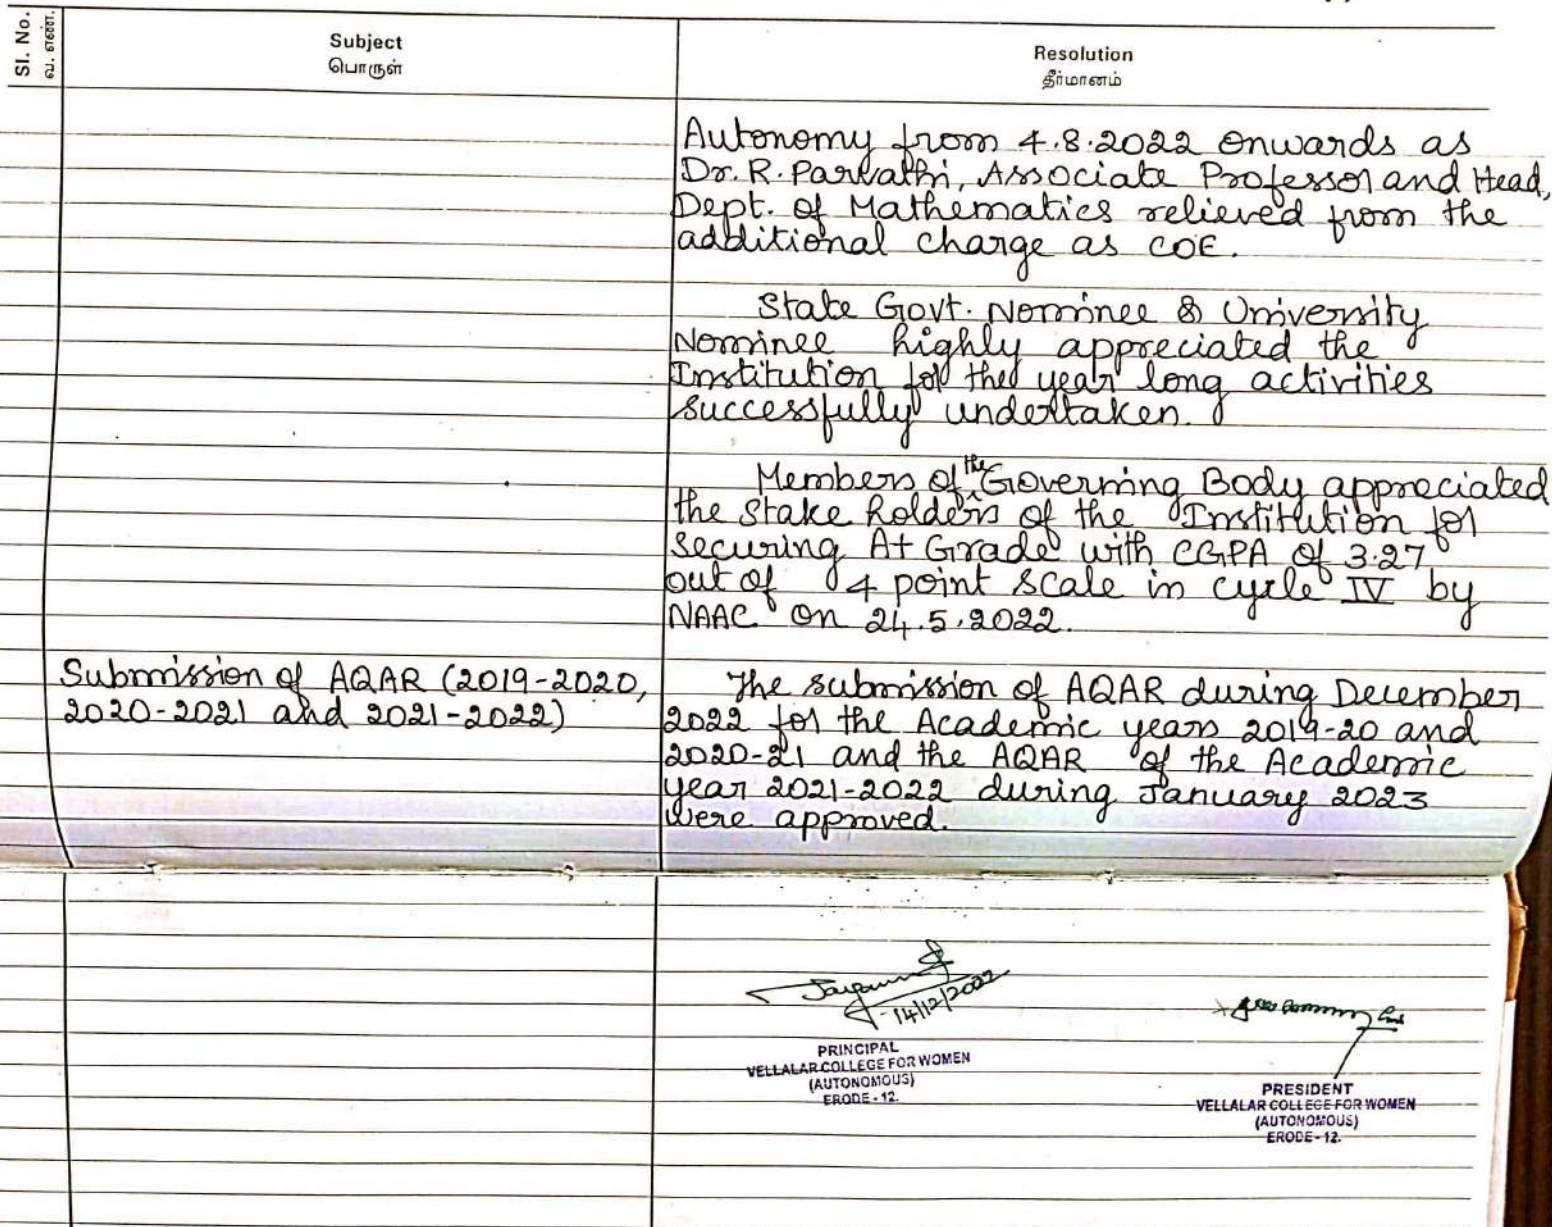 Sl. No.
வ. எண்.
Subject
பொருள்
Resolution
தீர்மானம்
Autonomy from 4.8.2022 onwards as
Dr. R. Parvathi, Associate Professor and Head,
Dept. of Mathematics relieved from the
additional charge as COE.
State Govt. Nominee & University
Nominee highly appreciated the
Institution for the year long activities
successfully undertaken.
Members of the Governing Body appreciated
the Stake holders of the Institution for
securing A+ Grade with CGPA of 3.27
out of 4 point scale in cycle IV by
NAAC on 24.5.2022.
Submission of AQAR (2019-2020,
2020-2021 and 2021-2022)
The submission of AQAR during December
2022 for the Academic years 2019-20 and
2020-21 and the AQAR of the Academic
year 2021-2022 during January 2023
were approved.
14/12/2022
PRINCIPAL
VELLALAR COLLEGE FOR WOMEN
(AUTONOMOUS)
ERODE - 12.
PRESIDENT
VELLALAR COLLEGE FOR WOMEN
(AUTONOMOUS)
ERODE - 12.